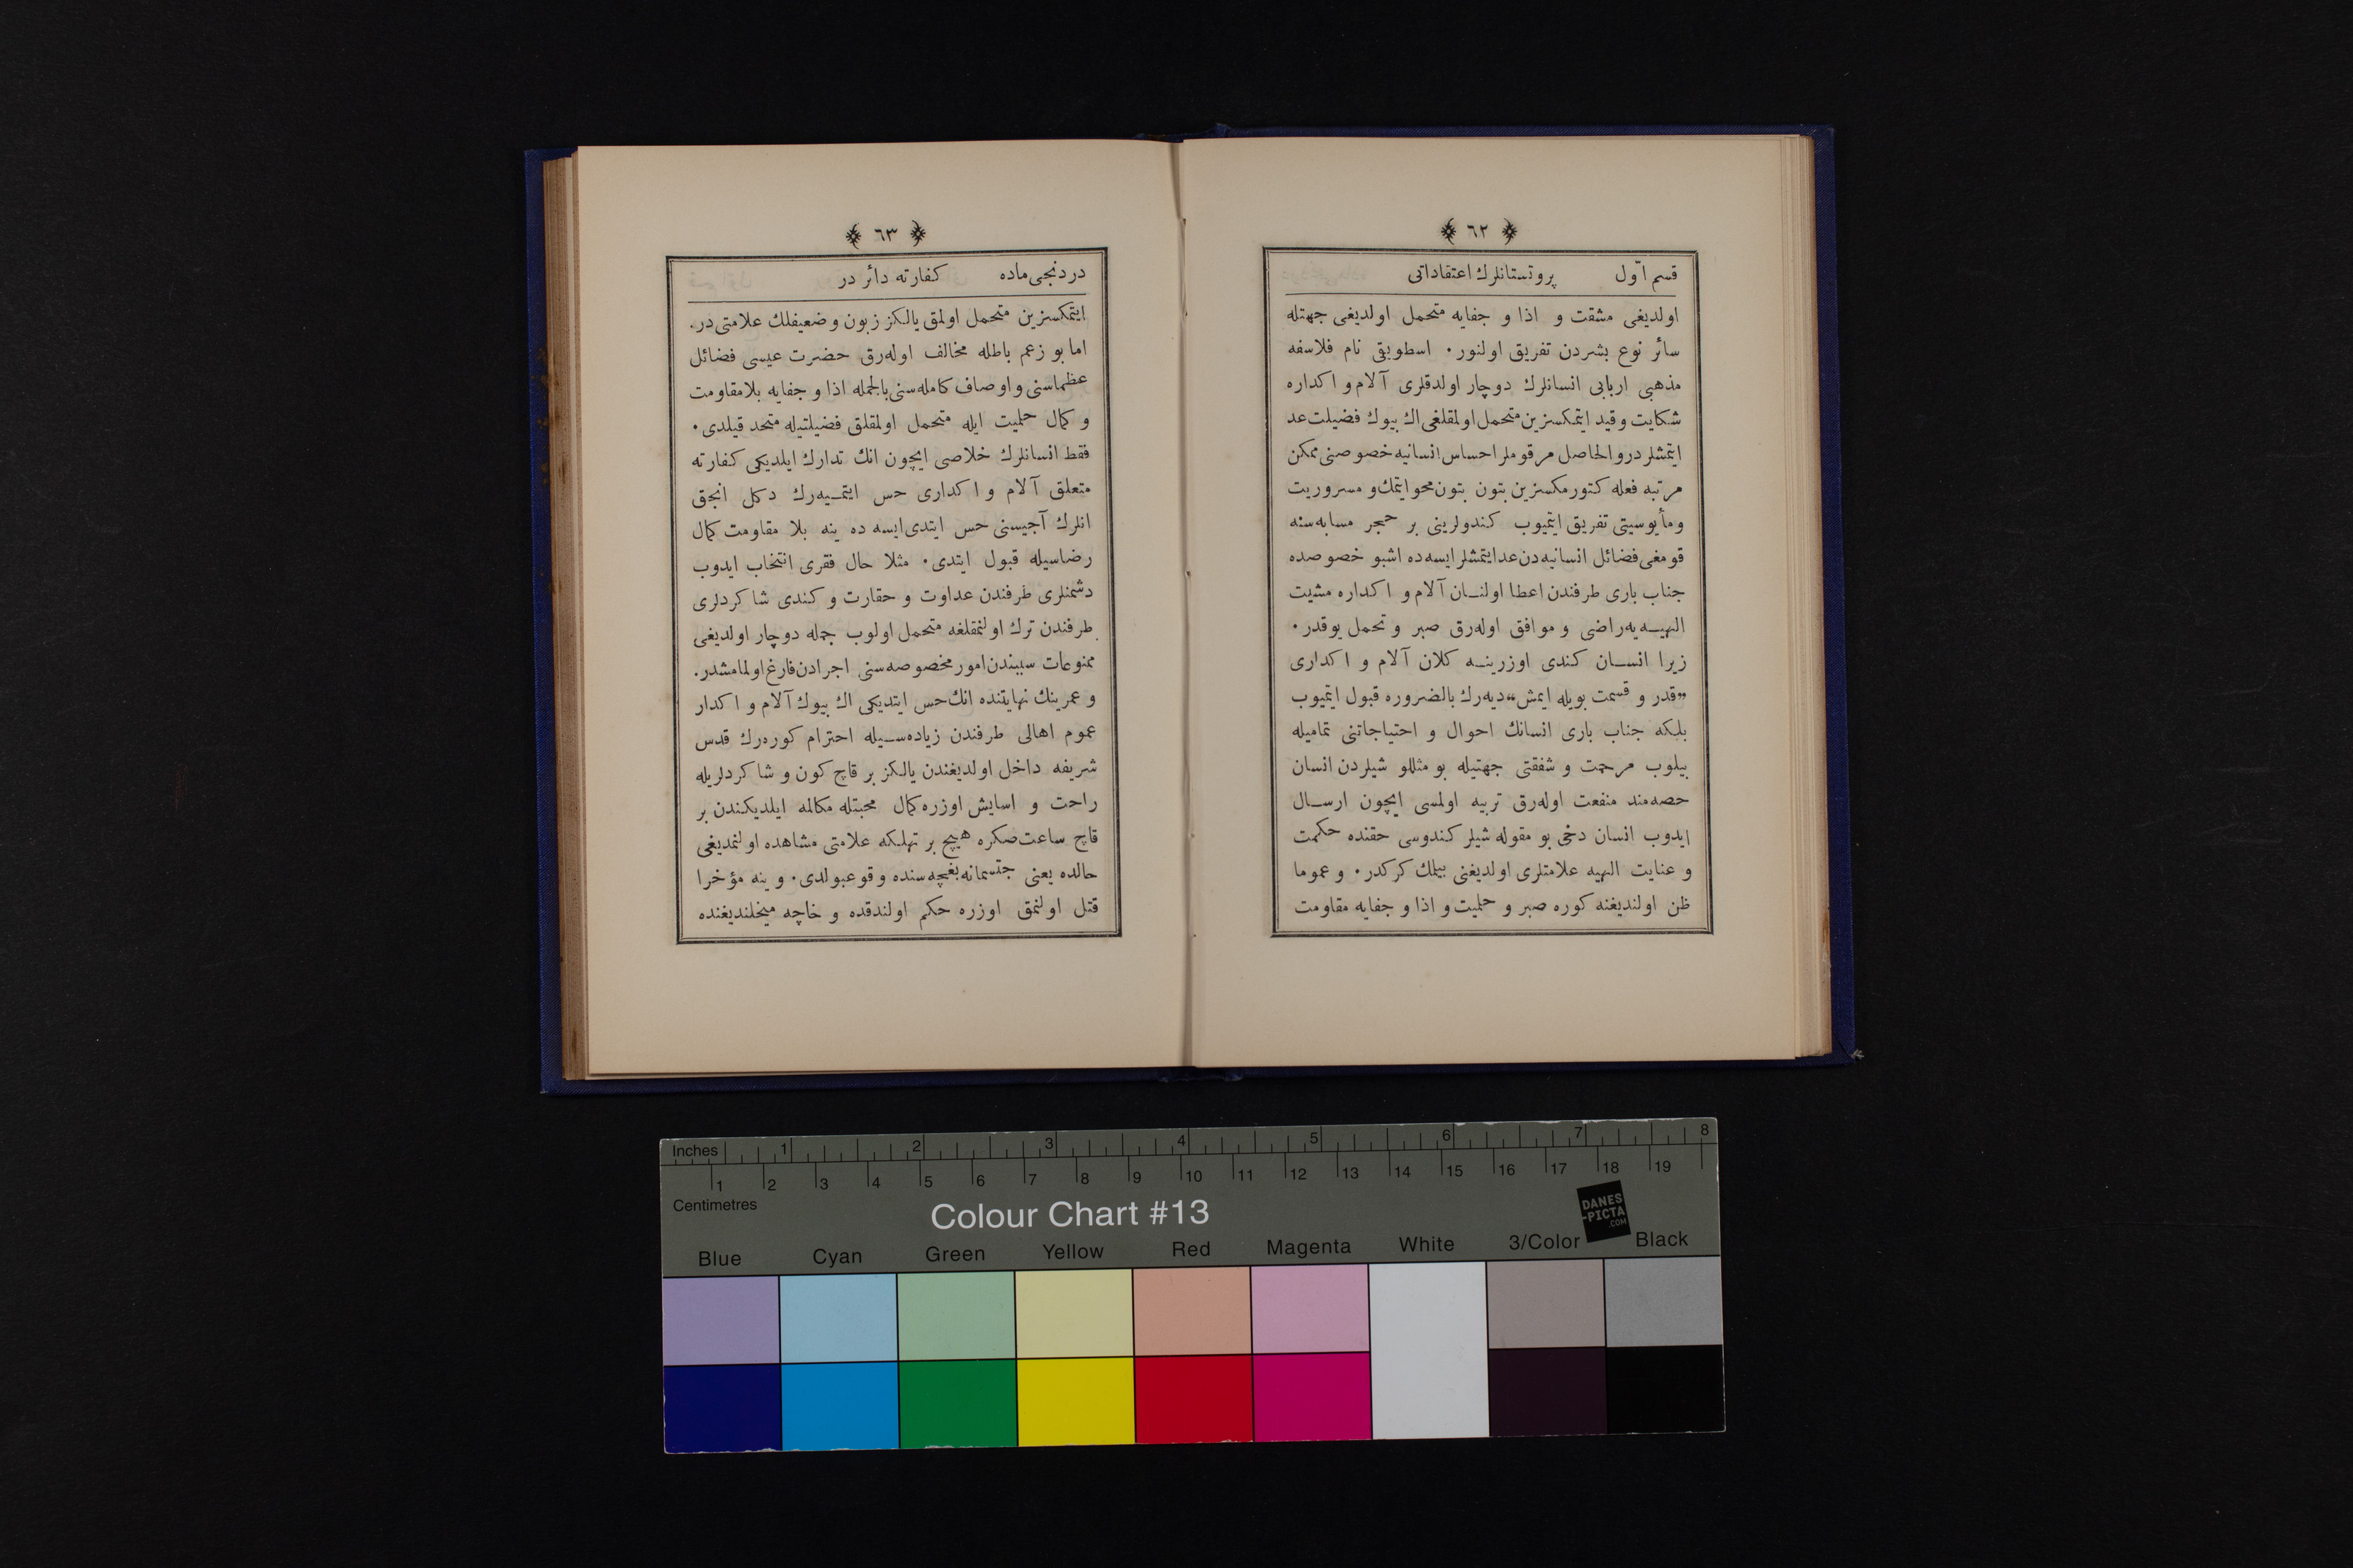 ﴿ ٦٢ ﴾
قسم اوّل پروتستانلرك اعتقاداتی
اولدیغی مشقت و اذا و جفایه متحمل اولدیغی جهتله
سائر نوع بشردن تفریق اولنور. اسطویقی نام فلاسفه
مذهبی اربابی انسانلرك دوچار اولدقلری آلام و اكداره
شكایت و قید ایتمكسزین متحمل اولمقلغی اك بیوك فضیلت عد
ایتمشلردر والحاصل مرقوملر احساس انسانیه خصوصنی ممكن
مرتبه فعله كتورمكسزین بتون بتون محو ایتمك و مسروریت
و مأیوسیتی تفریق ایتمیوب كندولرینی بر حجر مسابه سنه
قومغی فضائل انسانیه دن عد ایتمشلر ایسه ده اشبو خصوصده
جناب باری طرفندن اعطا اولنان آلام و اكداره مشیت
الهیه یه راضی و موافق اوله رق صبر و تحمل یوقدر.
زیرا انسان كندی اوزرینه كلان آلام و اكداری
„قدر و قسمت بویله ایمش“ دیه رك بالضروره قبول ایتمیوب
بلكه جناب باری انسانك احوال و احتیاجاتنی تمامیله
بیلوب مرحمت و شفقتی جهتیله بو مثللو شیلردن انسان
حصه مند منفعت اوله رق تربیه اولمسی ایچون ارسال
ایدوب انسان دخی بو مقوله شیلر كندوسی حقنده حكمت
و عنایت الهیه علامتلری اولدیغنی بیلمك كركدر. و عموما
ظن اولندیغنه كوره صبر و حلمیت و اذا و جفایه مقاومت
﴿ ٦٣ ﴾
دردنجی ماده كفارته دائر در
ایتمكسزین متحمل اولمق یالكز زبون و ضعیفلك علامتی در.
اما بو زعم باطله مخالف اوله رق حضرت عیسی فضائل
عظماسنی و اوصاف كامله سنی بالجمله اذا و جفایه بلا مقاومت
و كمال حلمیت ایله متحمل اولمقلق فضیلتیله متحد قیلدی.
فقط انسانلرك خلاصی ایچون انك تدارك ایلدیكی كفارته
متعلق آلام و اكداری حس ایتمیه رك دكل انجق
انلرك آجیسنی حس ایتدی ایسه ده ینه بلا مقاومت كمال
رضاسیله قبول ایتدی. مثلا حال فقری انتخاب ایدوب
دشمنلری طرفندن عداوت و حقارت و كندی شاكردلری
طرفندن ترك اولنمقلغه متحمل اولوب جمله دوچار اولدیغی
ممنوعات سببندن امور مخصوصه سنی اجرادن فارغ اولمامشدر.
و عمرینك نهایتنده انك حس ایتدیكی اك بیوك آلام و اكدار
عموم اهالی طرفندن زیاده سیله احترام كوره رك قدس
شریفه داخل اولدیغندن یالكز بر قاچ كون و شاكردلریله
راحت و اسایش اوزره كمال محبتله مكالمه ایلدیكندن بر
قاچ ساعت صكره هیچ بر تهلكه علامتی مشاهده اولنمدیغی
حالده یعنی جتسمانه بغچه سنده وقوعبولدی. و ینه مؤخرا
قتل اولنمق اوزره حكم اولندقده و خاچه میخلندیغنده
Inches 1 2 3 4 5 6 7 8
1 2 3 4 5 6 7 8 9 10 11 12 13 14 15 16 17 18 19
Centimetres
Colour Chart #13
DANES
-PICTA
.COM
Blue Cyan Green Yellow Red Magenta White 3/Color Black